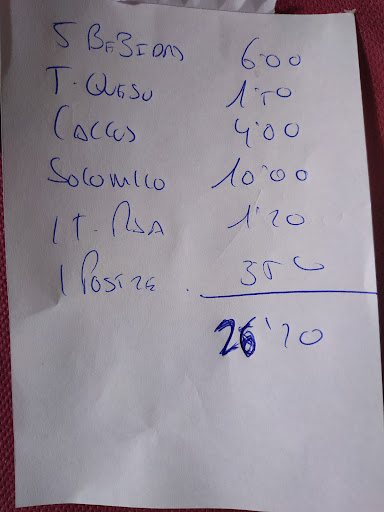 5 BEBIDAS 6'00
T. QUESO 1'50
CALLOS 4'00
SOLOMILLO 10'00
1 T. 1'20
1 POSTRE. 350
26'20